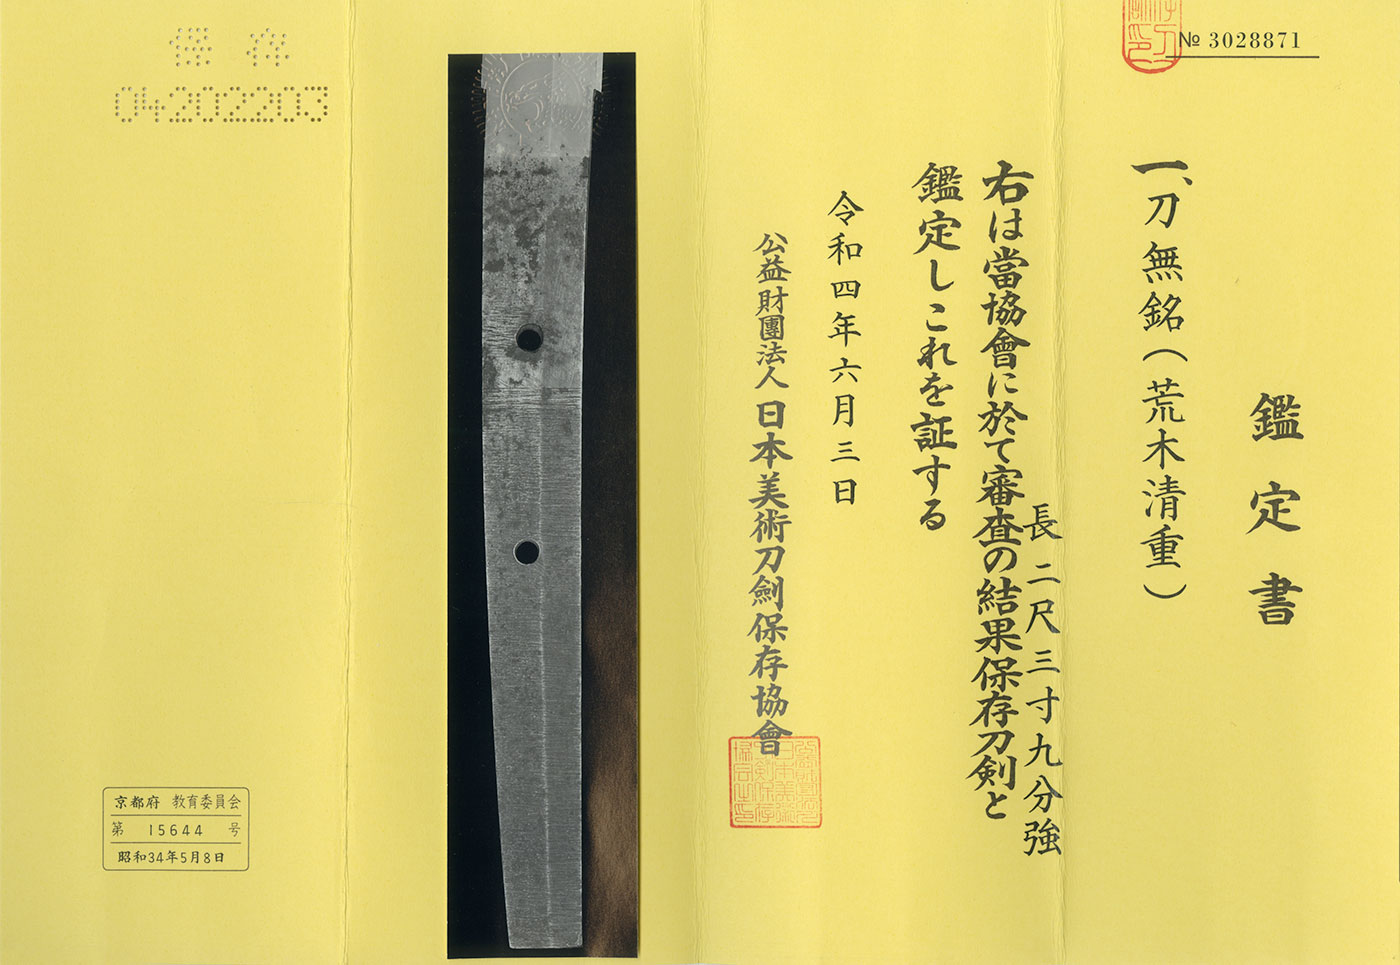 № 3028871
鑑定書
一、刀無銘(荒木清重)
長二尺三寸九分強
右は當協會に於て審査の結果保存刀剣と
鑑定しこれを証する
令和四年六月三日
公益財團法人日本美術刀劍保存協會
保存
04202203
京都府 教育委員会
第 15644 号
昭和34年5月8日